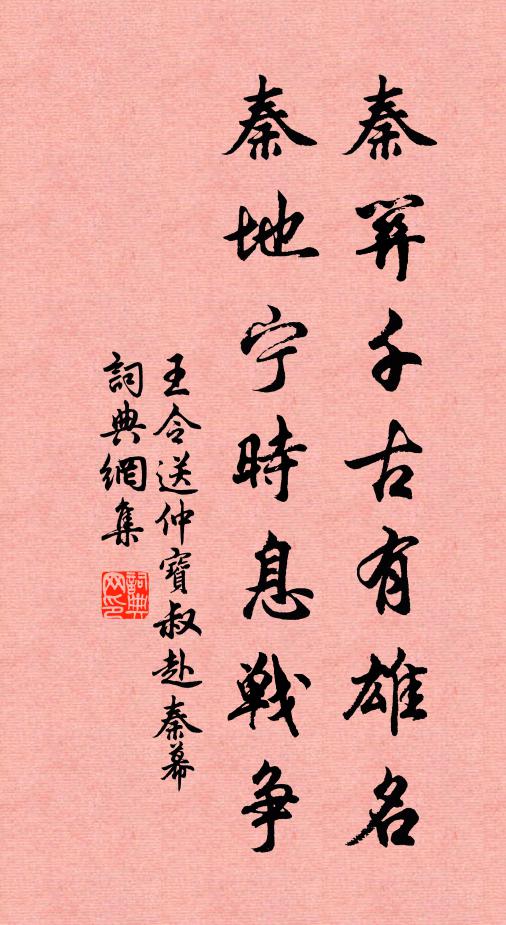 秦關千古有雄名
秦地宁時息戦争
王令送仲寶叔赴秦幕
詞典網集
詞典
网印